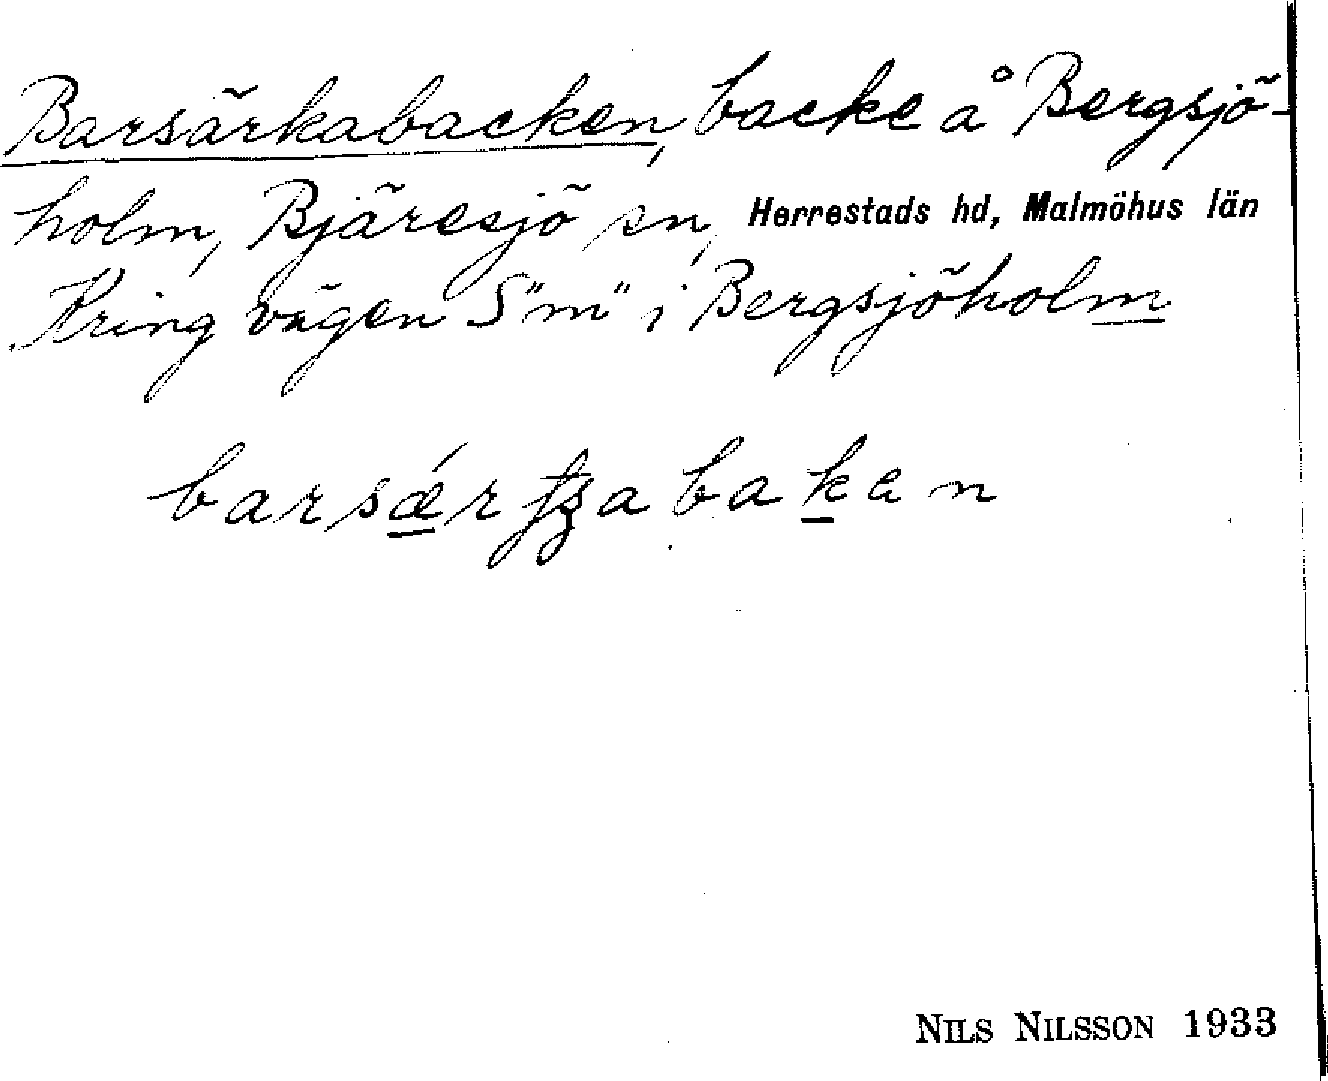 Barsärkabacken, backe å Bergsjö-
holm, Bjäresjö sn, Herrestads hd, Malmöhus län
Kring vägen S "m" i Bergsjöholm
barsǽrʃʒabakan
NILS NILSSON 1933